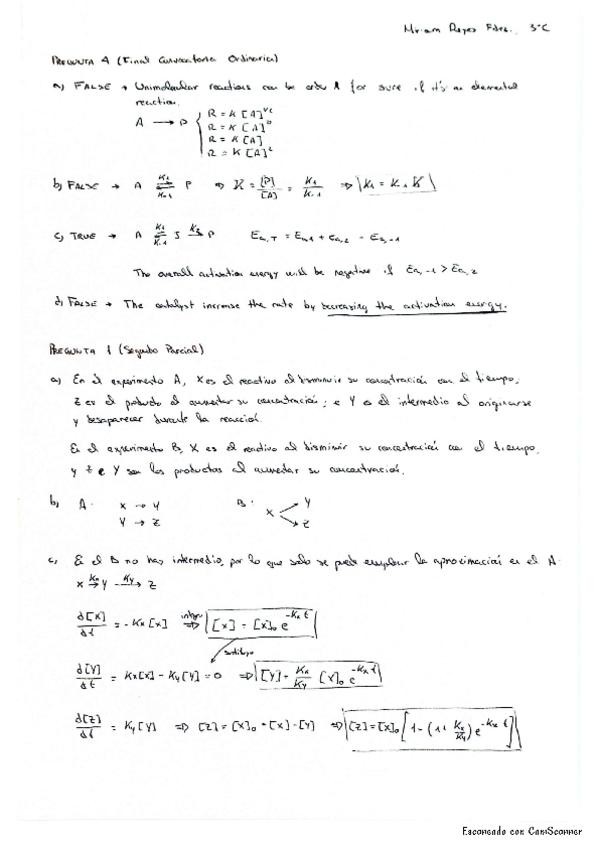 Miriam Reyes Fdez. 3ºC
PREGUNTA 4 (Final Convocatoria Ordinaria)
a) FALSE → Unimolecular reactions can be order 1 for sure if it's an elemental
reaction.
A → P { R = K [A]^1/2
R = K [A]^0
R = K [A]
R = K [A]^2
b) FALSE → A ⇌ P ⇒ K = [P]/[A] = K1/K-1 ⇒ K1 = K-1 K
c) TRUE → A ⇌ I → P Ea,T = Ea,1 + Ea,2 - Ea,-1
The overall activation energy will be negative if Ea,-1 > Ea,2
d) FALSE → The catalyst increase the rate by decreasing the activation energy.
PREGUNTA 1 (Segundo Parcial)
a) En el experimento A, X es el reactivo al disminuir su concentración con el tiempo;
Z es el producto al aumentar su concentración; e Y es el intermedio al originarse
y desaparecer durante la reacción.
En el experimento B, X es el reactivo al disminuir su concentración con el tiempo,
y Z e Y son los productos al aumentar su concentración.
b) A: X → Y B: X → Y
Y → Z → Z
c) En el B no hay intermedio, por lo que solo se puede emplear la aproximación en el A.
X -Kx→ Y -Ky→ Z
d[X]/dt = -Kx [X] integro ⇒ [X] = [X]o e^-Kx t
sustituyo
d[Y]/dt = Kx[X] - Ky[Y] = 0 ⇒ [Y] = Kx/Ky [X]o e^-Kx t
d[Z]/dt = Ky[Y] ⇒ [Z] = [X]o - [X] - [Y] ⇒ [Z] = [X]o [1 - (1 + Kx/Ky) e^-Kx t]
Escaneado con CamScanner